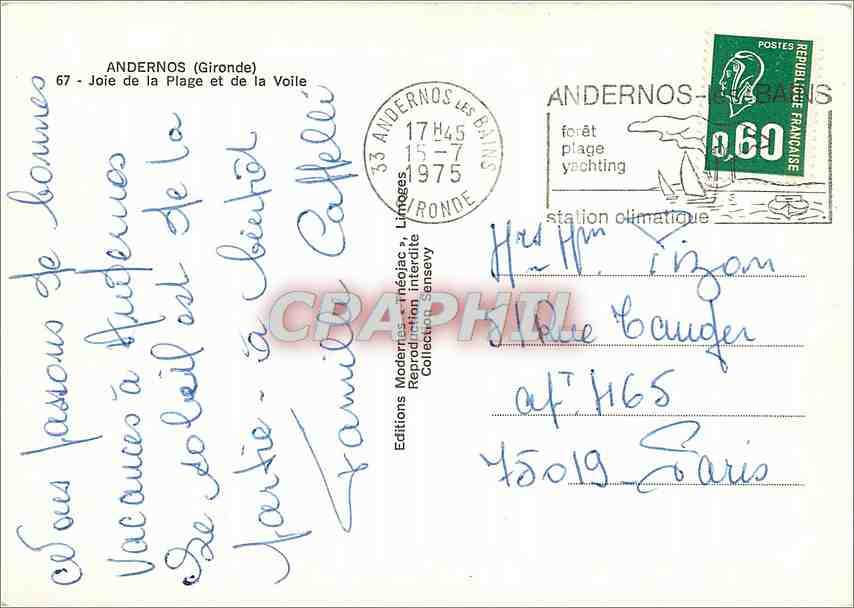 ANDERNOS (Gironde)
67 - Joie de la Plage et de la Voile
Nous passons de bonnes
vacances à Andernos
Le soleil est de la
partie - à bientôt
Famille Caffelli
Editions Modernes « Théojac », Limoges
Reproduction interdite
Collection Sensevy
33 ANDERNOS LES BAINS
17 H45
15 -7
1975
GIRONDE
ANDERNOS-les-BAINS
forêt
plage
yachting
station climatique
POSTES
REPUBLIQUE FRANÇAISE
0,60
Pizon
Rue Tanger
apt 1165
75019 Paris
CPAPHIL